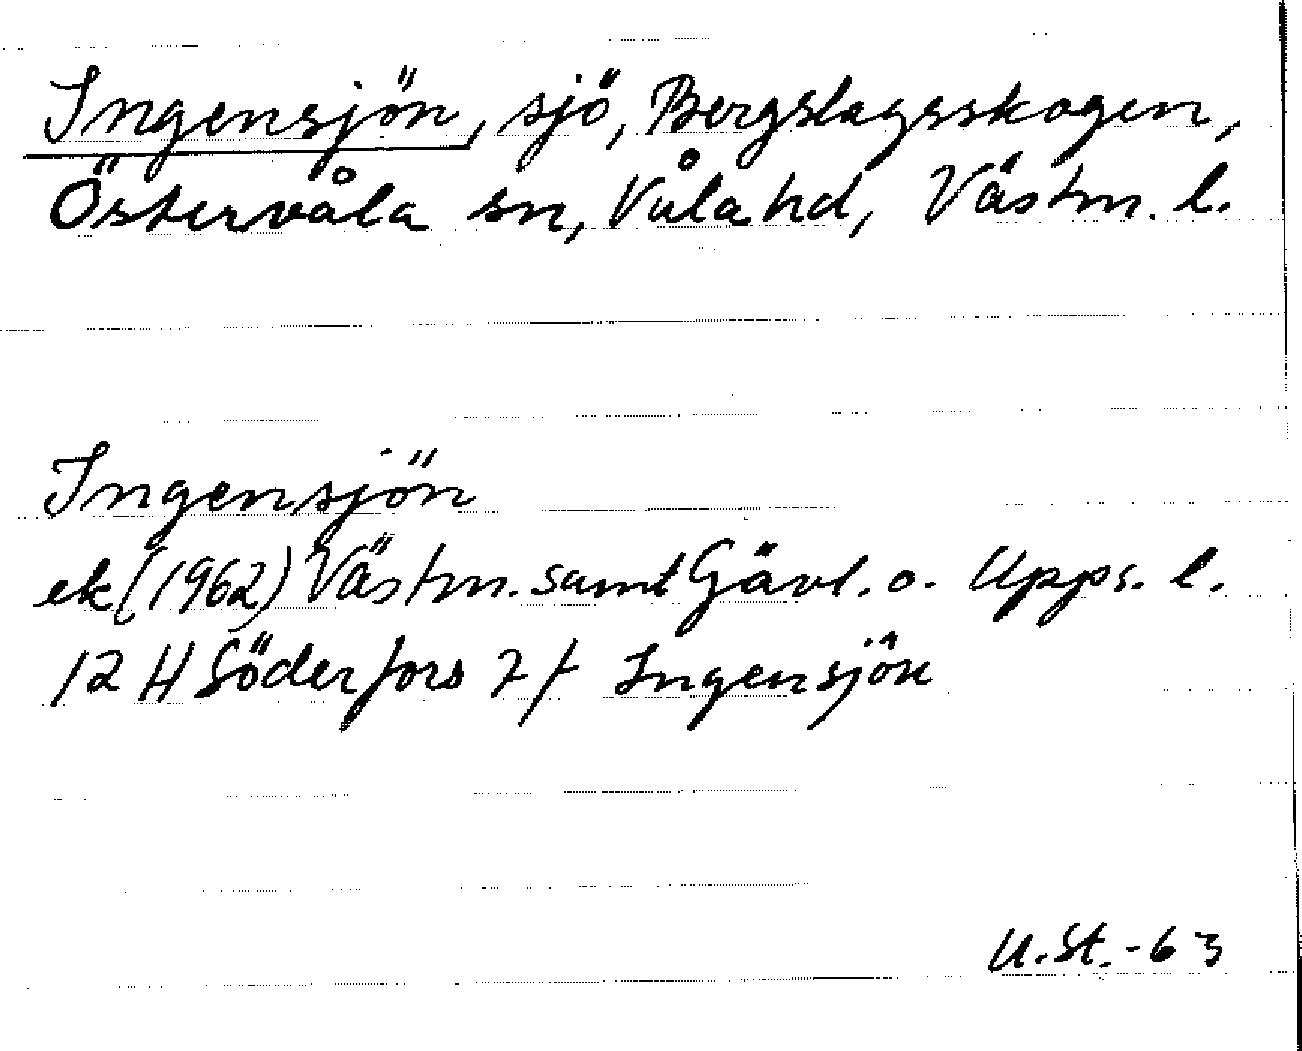 Ingensjön, sjö, Bergslagsskogen,
Östervåla sn, Våla hd, Västm. l.
Ingensjön
ek (1962) Västm. samt Gävl. o. Upps. l.
12 H Söderfors 7f Ingensjön
U.St.-63